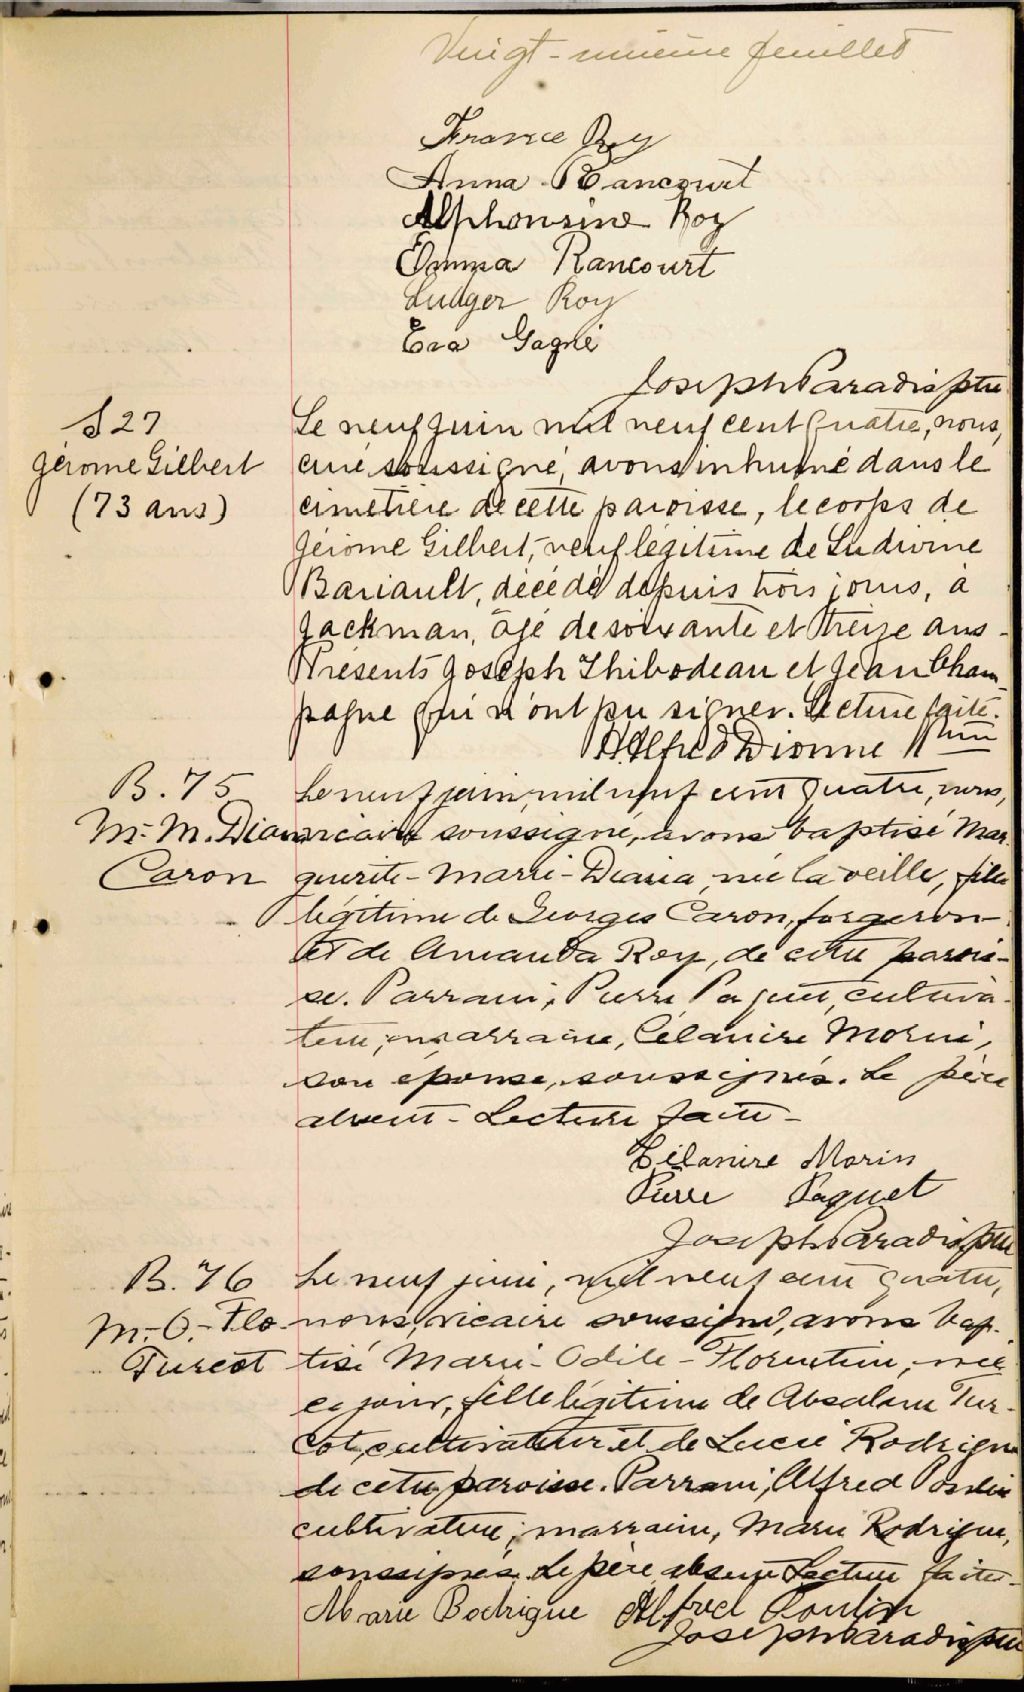 Vingt-unième feuillet
France Roy
Anna Rancourt
Alphonsine Roy
Emma Rancourt
Ludger Roy
Eva Gagné
Joseph Paradis ptre
S 27
Jérome Gilbert
(73 ans)
Le neuf juin mil neuf cent quatre, nous,
curé soussigné, avons inhumé dans le
cimetière de cette paroisse, le corps de
Jérome Gilbert, veuf légitime de Ludivine
Bariault, décédé depuis trois jours, à
Jackman, âgé de soixante et treize ans -
Présents Joseph Thibodeau et Jean Cham-
pagne qui n'ont pu signer. Lecture faite.
Alfred Dionne
B. 75
M.-M. Diana
Caron
Le neuf juin, mil neuf cent quatre, nous,
vicaire soussigné, avons baptisé Mar-
guerite-Marie-Diana, née la veille, fille
légitime de Georges Caron, forgeron
et de Amanda Roy, de cette parois-
se. Parrain, Pierre Paquet, cultiva-
teur, marraine, Célanire Morin,
son épouse, soussignés. Le père
absent - Lecture faite -
Célanire Morin
Pierre Paquet
Joseph Paradis, ptre
B. 76
M.-O.-Flo.
Turcot
Le neuf juin, mil neuf cent quatre,
nous, vicaire soussigné, avons bap-
tisé Marie-Odile-Florentine, née
ce jour, fille légitime de Absalom Tur-
cot, cultivateur et de Lucie Rodrigue
de cette paroisse. Parrain, Alfred Poulin
cultivateur, marraine, Marie Rodrigue,
soussignés. Le père absent Lecture faite -
Marie Rodrigue Alfred Poulin
Joseph Paradis ptre